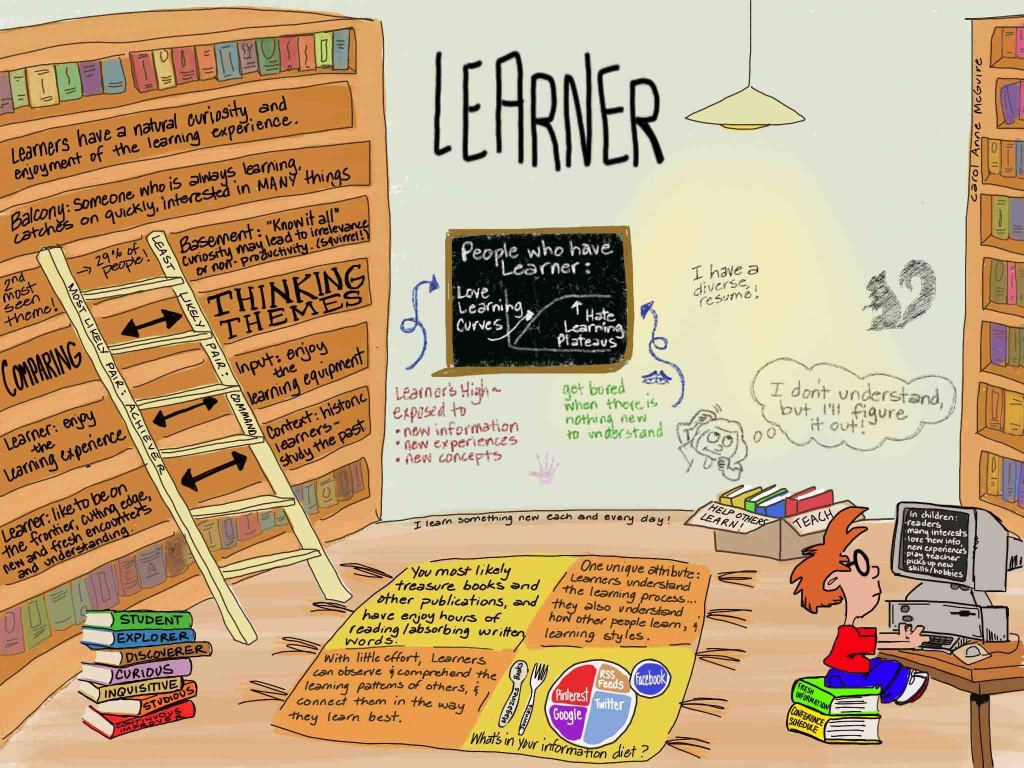 LEARNER
Carol Anne McGuire
Learners have a natural curiosity, and
enjoyment of the learning experience.
Balcony: Someone who is always learning,
catches on quickly, interested in MANY things
2nd
most
seen
theme!
→ 29% of
people!
Basement: "Know it all"
curiosity may lead to irrelevance
or non-productivity. (squirrel!)
MOST LIKELY PAIR: ACHIEVER
LEAST LIKELY PAIR: COMMAND
THINKING
THEMES
COMPARING
Input: enjoy
the
learning equipment
Learner: enjoy
the
learning experience
Context: historic
learners-
study the past
Learner: like to be on
the frontier, cutting edge,
new and fresh encounters
and understanding.
People who have
Learner:
Love
Learning
Curves
Hate
Learning
Plateaus
Learner's High~
exposed to
• new information
• new experiences
• new concepts
get bored
when there is
nothing new
to understand
I have a
diverse
resumé!
I don't understand,
but I'll figure
it out!
I learn something new each and every day!
HELP OTHERS
LEARN!
TEACH
In children:
-readers
-many interests
-love new info,
new experiences
play teacher
picks up new
skills/hobbies
STUDENT
EXPLORER
DISCOVERER
CURIOUS
INQUISITIVE
STUDIOUS
CONTINUOUS
IMPROVER
You most likely
treasure books and
other publications, and
have enjoy hours of
reading/absorbing written
words.
One unique attribute:
Learners understand
the learning process...
they also understand
how other people learn, &
learning styles.
With little effort, Learners
can observe & comprehend the
learning patterns of others, &
connect them in the way
they learn best.
Magazines Books
Journals
Pinterest
RSS
Feeds
Google
Twitter
Facebook
What's in your information diet?
FRESH
INFORMATION
CONFERENCE
SCHEDULE